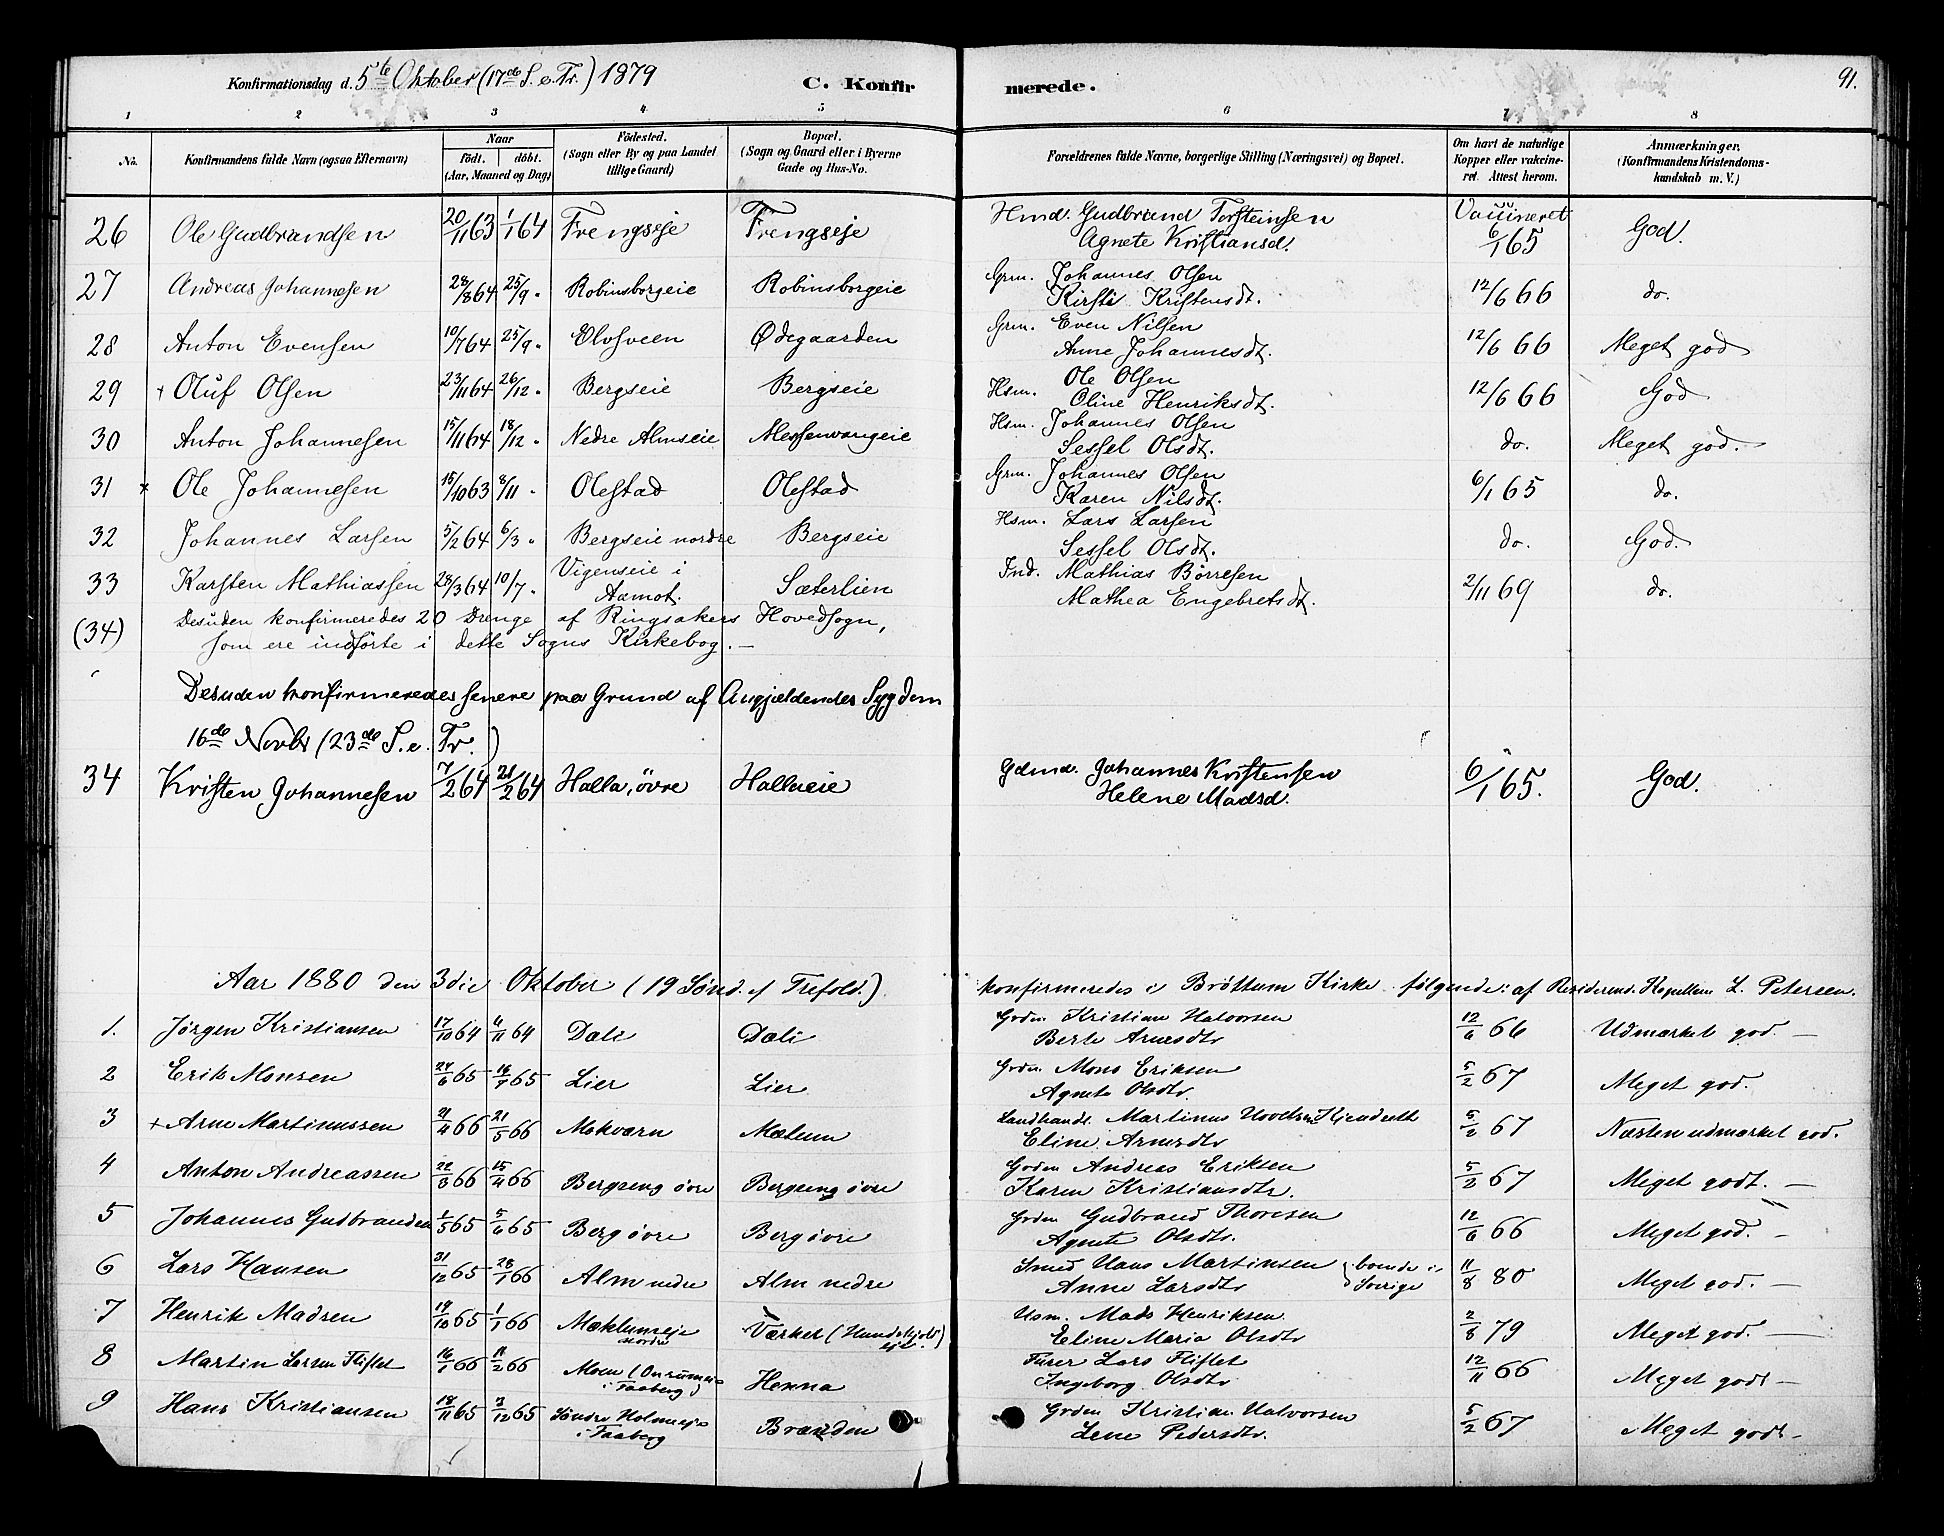 Konfirmationsdag d. 5te Oktober (17de S. e. Tr.) 1879 C. Konfirmerede. 91.
1 2 3 4 5 6 7 8
No. Konfirmandens fulde Navn (ogsaa Efternavn) Naar födt. döbt. (Aar, Maaned og Dag) Födested. (Sogn eller By og paa Landet tillige Gaard) Bopæl. (Sogn og Gaard eller i Byerne Gade og Hus-No. Forældrenes fulde Navne, borgerlige Stilling (Næringsvei) og Bopæl. Om havt de naturlige Kopper eller vakcineret. Attest herom. Anmærkninger. (Konfirmandens Kristendomskundskab m. V.)
26 Ole Gudbrandsen 20/11 63 1/1 64 Frengseje Frengseje Hmd. Gudbrand Torsteinsen Vaccineret
Agnete Kristiansd. 6/1 65 God.
27 Andreas Johannesen 28/8 64 25/9 " Robinsborgeie Robinsborgeie Grm. Johannes Olsen
Kirsti Kristensdt. 12/6 66 do.
28 Anton Evensen 10/7 64 25/9 " Elvsveen Ødegaarden Grm. Even Nilsen
Anne Johannesdt. 12/6 66 Meget god
29 + Oluf Olsen 23/11 64 26/12 " Bergseie Bergseie Hsm. Ole Olsen
Oline Henriksdt. 12/6 66 God
30 Anton Johannesen 15/11 64 18/12 " Nedre Almseie Messenvangeie Hsm. Johannes Olsen
Sessel Olsdt. do. Meget god.
31 x Ole Johannesen 15/10 63 8/11 " Olestad Olestad Grm. Johannes Olsen
Karen Nilsdt. 6/1 65 do.
32 Johannes Larsen 5/2 64 6/3 " Bergseie nordre Bergseie Hsm. Lars Larsen
Sessel Olsdt. do. God.
33 Karsten Mathiassen 23/3 64 10/7 " Vigenseie i Aamot. Sæterlien Ind. Mathias Börresen
Mathea Engebretsdt. 2/11 69 do.
(34) Desuden konfirmeredes 20 Drenge af Ringsakers Hovedsogn,
som ere indförte i dette Sogns Kirkebog. —
Desuden konfirmeredes senere paa Grund af Angjeldendes Sygdom
16de Novbr (23de S. e. Tr.)
34 Kristen Johannesen 7/2 64 21/2 64 Halla, övre Hallaeie Gdmd. Johannes Kristensen
Helene Madsd. 6/1 65. God.
Aar 1880 den 3die Oktober (19 Sönd. ef Trefold.) konfirmeredes i Bröttum Kirke følgende: af Residerend. Kapellan L. Petersen.
1. Jørgen Kristiansen 17/10 64 6/11 64 Dæli Dæli Grdm. Kristian Halvorsen
Berte Arnesdtr 12/6 66 Udmærket god. —
2 Erik Monsen 24/6 65 16/7 65 Lier Lier Grdm. Mons Eriksen
Agnete Olsdtr. 5/2 67 Meget god.
3 + Arne Martinussen 21/4 66 21/5 66 Mokværn Mælum Landhandl. Martinus
Eline Arnesdtr 5/2 67 Næsten udmærket god.
4 Anton Andreassen 22/3 66 15/4 66 Bergseng øvre Bergseng øvre Grdm Andreas Eriksen
Karen Kristiansdtr. 5/2 67 Meget godt. —
5 Johannes Gudbrandsen 1/5 65 5/6 65 Berg øvre Berg øvre Grdm Gudbrand Thoresen
Agnete Olsdtr. 12/6 66 Meget god. —
6 Lars Hansen 31/12 65 28/1 66 Alm nedre Alm nedre Smed Hans Martinsen boende i
Anne Larsdtr Sverige 11/8 80 Meget god. —
7 Henrik Madsen 19/10 65 1/1 66 Mæhlumseje nordre Værket Hsm. Mads Henriksen.
Eline Maria Olsdtr 2/8 79 Meget god. —
8 Martin Larsen Fliflet 16/1 66 11/2 66 Moen i Faaberg) Henna Furer Lars Fliflet
Ingeborg Olsdtr 12/11 66 Meget godt —
9 Hans Kristiansen 18/11 65 3/12 65 Søndre Holmseje i Faaberg Brænden Grdm Kristian Halvorsen
Lene Pedersdtr. 5/2 67 Meget godt —